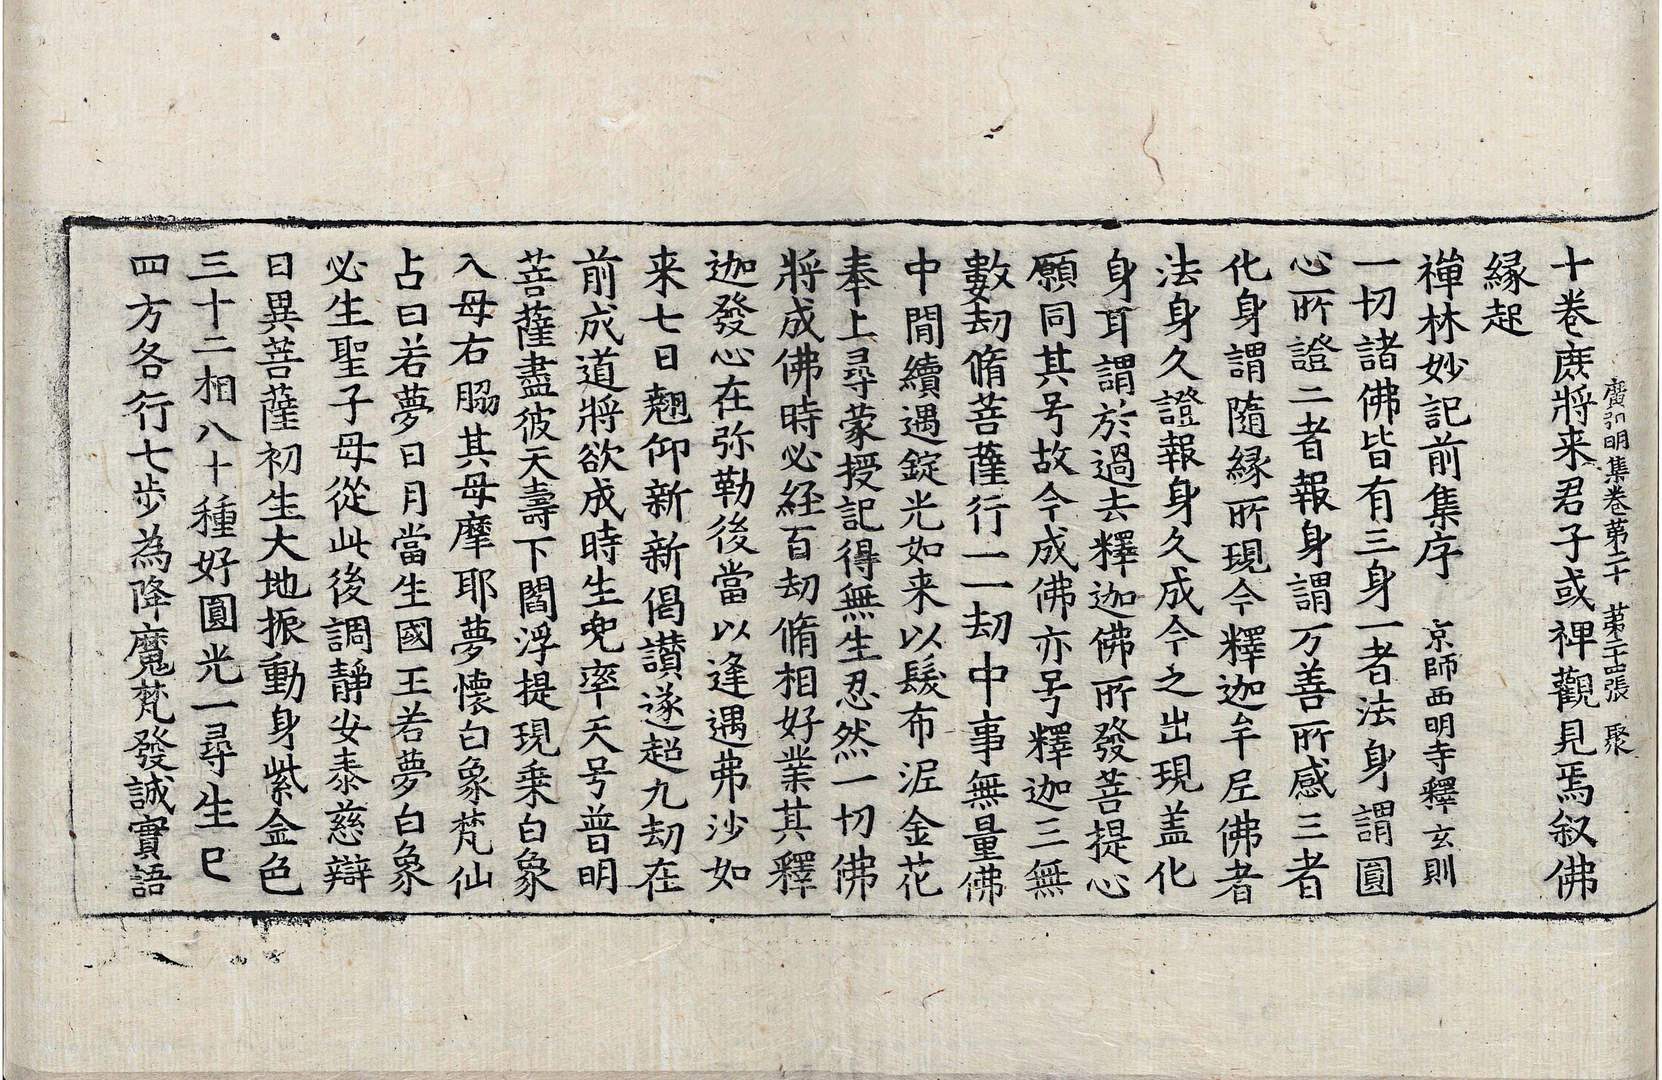 十卷庻將来君子或禆觀見焉叙佛
廣弘明集卷第二十 第二十四張 聚
縁起
禪林妙記前集序 京師西明寺釋玄則
一切諸佛皆有三身一者法身謂圓
心所證二者報身謂万善所感三者
化身謂隨縁所現今釋迦牟尼佛者
法身久證報身久成今之出現盖化
身耳謂於過去釋迦佛所發菩提心
願同其号故今成佛亦号釋迦三無
數劫脩菩薩行一一劫中事無量佛
中間續遇錠光如来以髮布泥金花
奉上尋蒙授記得無生忍然一切佛
將成佛時必經百劫脩相好業其釋
迦發心在弥勒後當以逢遇弗沙如
来七日翹仰新新偈讃遂超九劫在
前成道將欲成時生兜率天号普明
菩薩盡彼天壽下閻浮提現乗白象
入母右脇其母摩耶夢懐白象梵仙
占曰若夢日月當生國王若夢白象
必生聖子母從此後調靜安泰慈辯
日異菩薩初生大地振動身紫金色
三十二相八十種好圓光一尋生已
四方各行七步為降魔梵發誠實語